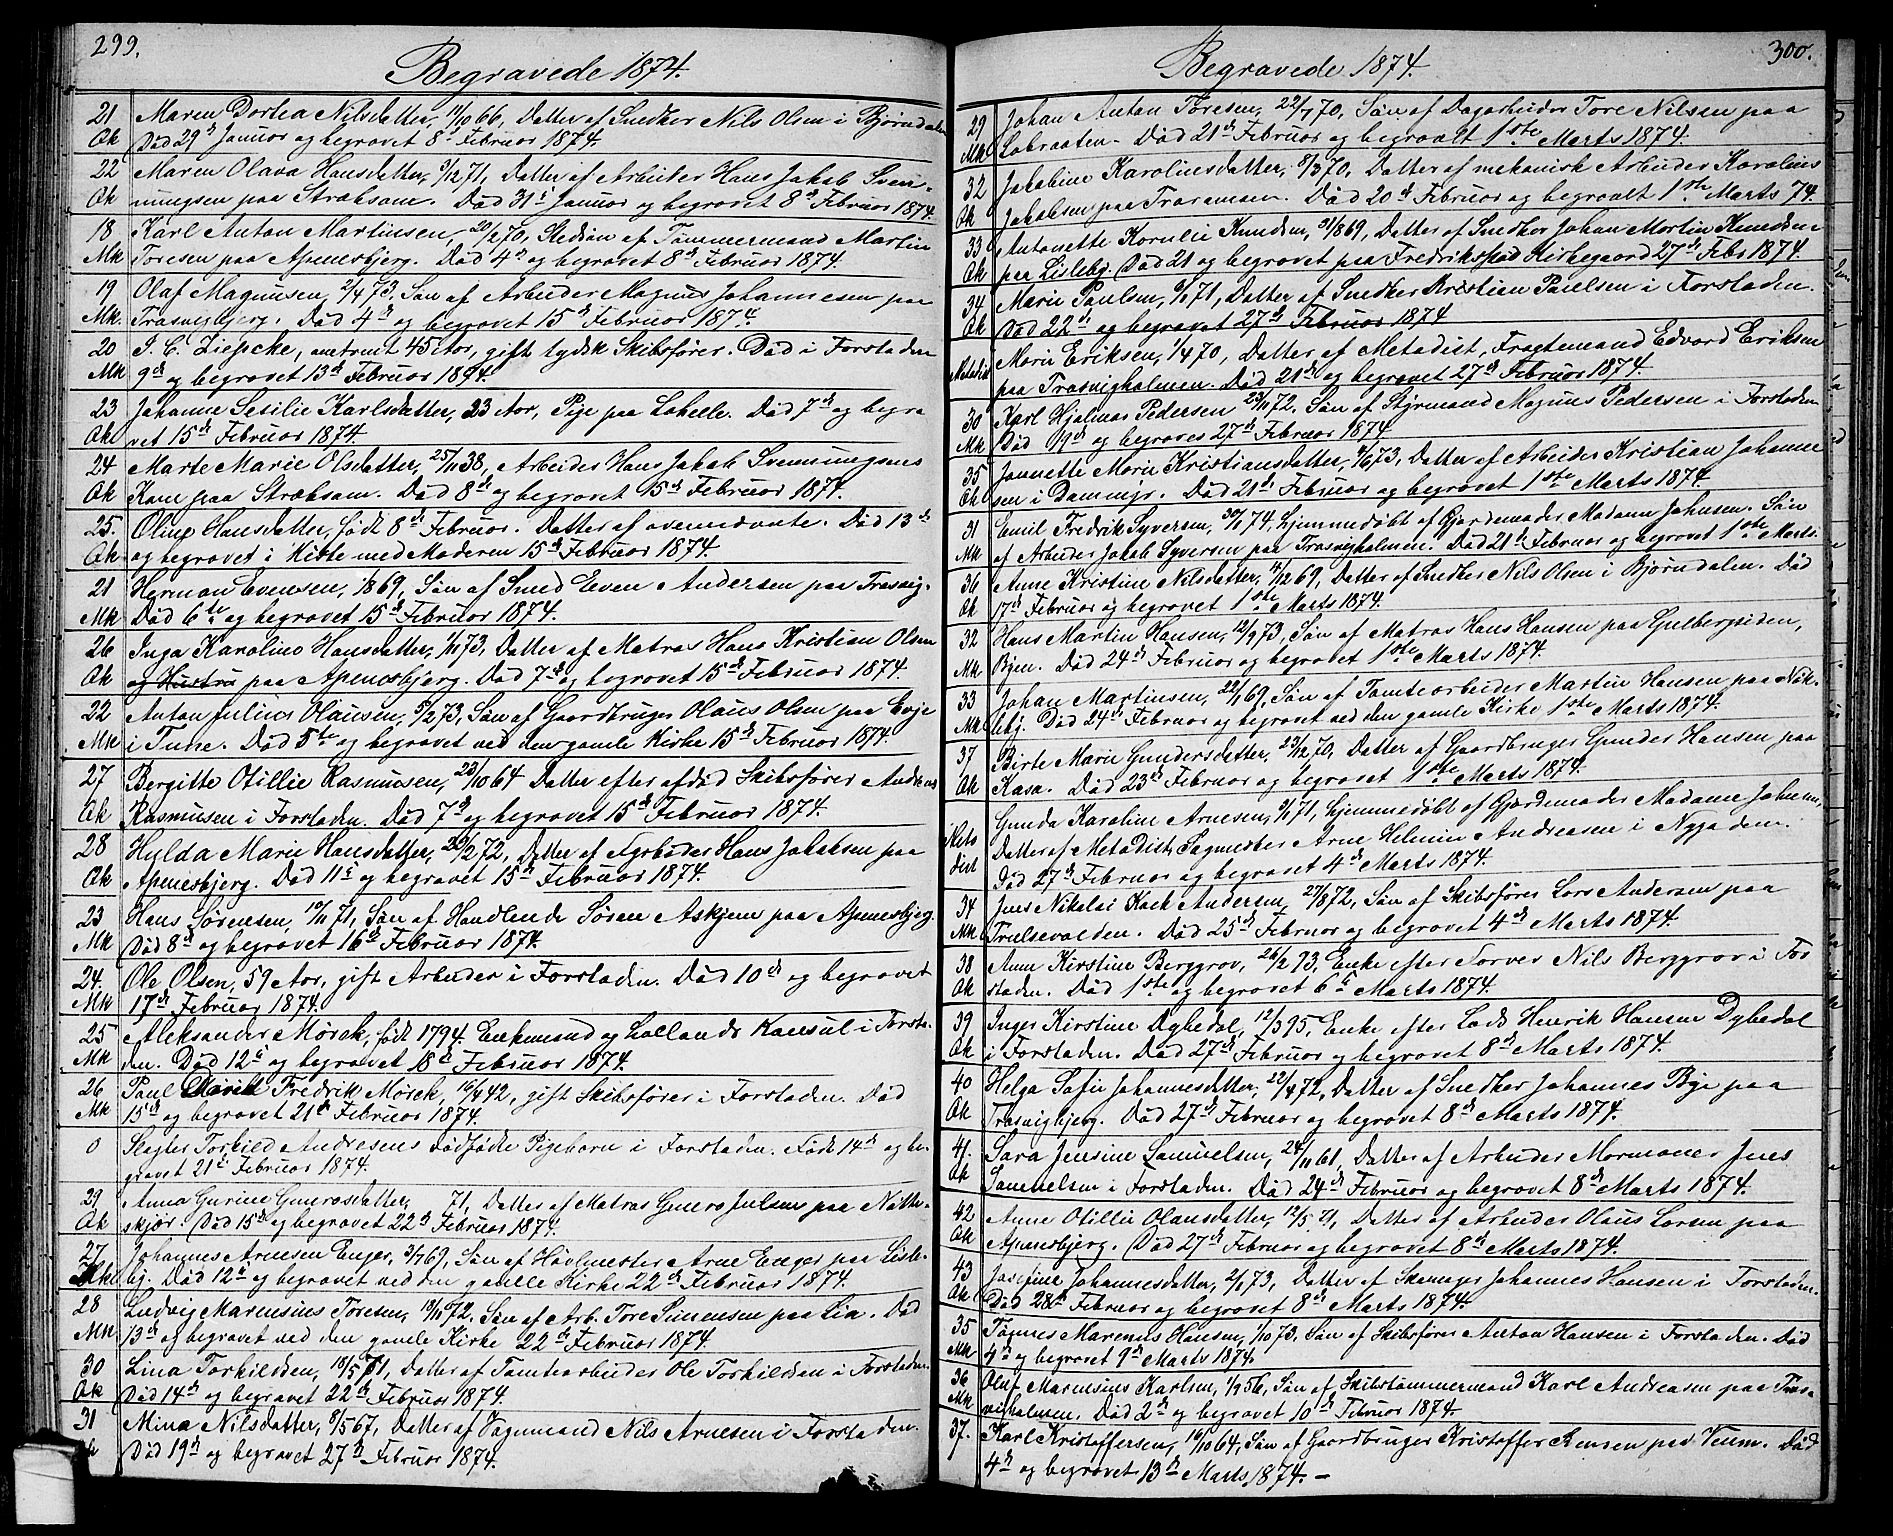 299.
Begravede 1874.
21 Maren Dortea Nilsdatter, 11/10 66, Datter af Snedker Nils Olsen i Bjørndalen
Qk Død 29de Januar og begravet 8de Februar 1874.
22 Maren Olava Hansdatter, 9/12 71, Datter af Arbeider Hans Jakob Sven-
Qk ningsen paa Stræksam. Død 31te Januar og begravet 8de Februar 1874.
18 Karl Anton Martinsen, 20/2 70, Stedsøn af Tømmermand Martin
Mk Toresen paa Apenesbjerg. Død 4de og begravet 8de Februar 1874.
19 Olaf Magnusen, 2/4 73, Søn af Arbeider Magnus Johannesen paa
Mk. Trosvigbjerg. Død 4de og begravet 15de Februar 1874.
20 I. C. Ziepcke, omtrent 45 Aar, gift tydsk Skibsfører. Død i Forstaden
Mk 9de og begravet 13de Februar 1874.
23 Johanne Sesilie Karlsdatter, 23 Aar, Pige paa Labelle. Død 7de og begra
Qk vet 15de Februar 1874.
24 Marte Marie Olsdatter, 25/11 38, Arbeider Hans Jakob Svenningsens
Qk Kone paa Stræksam. Død 8de og begravet 15de Februar 1874.
25. Oline Hansdatter, født 8de Februar. Datter af ovennævnte. Død 13de
Qk og begravet i Kiste med Moderen 15de Februar 1874.
21 Herman Evensen, 1869, Søn af Smed Even Andersen paa Trosvig.
Mk Død 6te og begravet 15de Februar 1874.
26 Inga Karoline Hansdatter, 1/11 73, Datter af Matros Hans Kristian Olsen
Qk og Hustru paa Apenesbjerg. Død 7de og begravet 15de Februar 1874.
22 Anton Julius Olausen, 9/2 73, Søn af Gaardbruger Olaus Olsen paa Evje
Mk i Tune. Død 5te og begravet ved den gamle Kirke 15de Februar 1874.
27 Bergitte Otillie Rasmusen, 23/10 64 Datter efter afdød Skibsfører Andreas
Qk Rasmusen i Forstaden. Død 7de og begravet 15de Februar 1874.
28 Hylda Marie Hansdatter, 20/2 72, Datter af Hans Jakobsen paa
Qk Apenesbjerg. Død 11te og begravet 15de Februar 1874.
23 Hans Sørensen, 10/11 71, Søn af Handlende Søren Askjem paa Apenesbjerg.
Mk Død 8de og begravet 16de Februar 1874.
24. Ole Olsen, 59 Aar, gift Arbeider i Forstaden. Død 10de og begravet
Mk 17de Februar 1874.
25 Aleksander Mørch, født 1794. Enkemand og Hollands Konsul i Forsta-
Mk den. Død 12te og begravet 18de Februar 1874.
26 Paul David Fredrik Mørch, 16/4 42, gift Skibsfører i Forstaden. Død
Mk 15de og begravet 21de Februar 1874.
0 Slagter Torkild Andresens dødfødte Pigebarn i Forstaden. Født 14de og be-
gravet 21de Februar 1874.
29 Anna Gurine Gunerosdatter, 71, Datter af Matros Gunero Julsen paa Nøkle-
Qk skjær. Død 15de og begravet 22de Februar 1874.
27 Johannes Arnesen Enger, 3/7 69, Søn af Høvlmester Arne Enger paa Lisle-
Mk by. Død 12te og begravet ved den gamle Kirke 22de Februar 1874.
28 Ludvig Marensius Toresen, 18/11 72, Søn af Arb. Tore Simensen paa Lia. Død
Mk 13de og begravet ved den gamle Kirke 22de Februar 1874.
30 Lina Torkildsen, 18/5 71, Datter af Tomtearbeider Ole Torkildsen i Forstaden.
Qk Død 14de og begravet 22de Februar 1874.
31 Mina Nilsdatter, 9/5 67, Datter af Vognmand Nils Arnesen i Forstaden.
Død 19de og begravet 27de Februar 1874.
300.
Begravede 1874.
29 Johan Anton Toresen, 22/7 70, Søn af Dagarbeider Tore Nilsen paa
Mk Labraaten. Død 21de Februar og begravet 1ste Marts 1874.
32 Jakobine Karolinesdatter, 8/3 70, Datter af mekanisk Arbeider Karolius
Qk Jakobsen paa Traramsen. Død 20de Februar og begravet 1ste Marts 74.
33 Antonette Kornelie Knudsen, 31/8 69, Datter af Snedker Johan Martin Knudsen
Qk paa Lisleby. Død 21 og begravet paa Fredrikstad Kirkegaard 27de Febr 1874.
34 Marie Paulsen, 9/1 71, Datter af Snedker Kristian Paulsen i Forstaden.
Qk Død 22de og begravet 27de Februar 1874
Metodist Marie Eriksen, 1/4 70, Datter af Metodist, Fragtemand Edvard Eriksen
paa Trosvigholmen. Død 21de og begravet 27de Februar 1874.
30 Karl Hjalmar Pedersen 23/11 72, Søn af Styrmand Magnus Pedersen i Forstaden
Mk Død 19de og begravet 27de Februar 1874.
35 Jannette Marie Kristiansdatter, 9/6 73, Datter af Arbeider Kristian Johanne
Qk sen i Dammyr. Død 21de Februar og begravet 1ste Marts 1874.
31 Emil Fredrik Syversen, 30/1 74, hjemmedøbt af Gjordemoder Madame Johnsen. Søn
Mk af Arbeider Jakob Syversen paa Trosvigholmen. Død 21de Februar og begravet 1ste Marts.
36 Anne Kristine Nilsdatter, 4/12 69, Datter af Snedker Nils Olsen i Bjørndalen. Død
Qk 17de Februar og begravet 1ste Marts 1874.
32 Hans Martin Hansen, 12/9 73, Søn af Matros Hans Hansen paa Gulbergsiden,
Mk Byen. Død 24de Februar og begravet 1ste Marts 1874.
33 Johan Martinsen, 22/1 69, Søn af Tomtearbeider Martin Hansen paa Nøk-
Mk leby. Død 24de Februar og begravet ved den gamle Kirke 1ste Marts 1874.
37 Birte Marie Gundersdatter, 23/12 70, Datter af Gaardbruger Gunder Hansen paa
Qk Kasa. Død 23de Februar og begravet 1ste Marts 1874.
Meto Gunda Karoline Arnesen, 9/1 71, hjemmedøbt af Gjordemoder Madame Johnsen,
dist Datter af Metodist, Sagmester Arne Helmin Andreasen i Nygaden.
Død 27de Februar og begravet 4de Marts 1874.
34 Jens Nikolai Koch Andersen, 27/8 72, Søn af Skibsfører Lars Andersen paa
Mk Trulsevolden. Død 25de Februar og begravet 4de Marts 1874.
38 Anne Kirstine Berggrov, 26/2 93, Enke efter Farver Nils Berggrov i For
Qk staden. Død 1ste og begravet 6te Marts 1874.
39 Inger Kirstine Dybedal, 12/3 95, Enke efter Lods Henrik Hansen Dybedal
Qk i Forstaden. Død 27de Februar og begravet 8de Marts 1874.
40 Helga Sofie Johannesdatter, 22/4 72, Datter af Snedker Johannes Bye paa
Qk Trosvigbjerg. Død 27de Februar og begravet 8de Marts 1874.
41. Sara Jensine Samuelsen, 24/11 61, Datter af Arbeider Mormoner Jens
Qk Samuelsen i Forstaden. Død 24de Februar og begravet 8de Marts 1874.
42 Anne Otillie Olausdatter, 12/5 71, Datter af Arbeider Olaus Larsen paa
Qk Apenesbjerg. Død 27de Februar og begravet 8de Marts 1874.
43 Josefine Johannesdatter, 2/1 73, Datter af Skomager Johannes Hansen i Forstaden.
Qk Død 28de Februar og begravet 8de Marts 1874.
35 Tønnes Marenus Hansen, 1/10 73, Søn af Skibsfører Anton Hansen i Forstaden. Død
Mk 4de og begravet 9de Marts 1874.
36 Oluf Marensius Karlsen, 1/9 56, Søn af Skibstømmermand Karl Andreasen paa Tros-
Mk vigholmen. Død 2de og begravet 10de Februar 1874.
37. Karl Kristoffersen, 16/10 64, Søn af Gaardbruger Kristoffer Rensen paa Veum. Død
4de og begravet 13de Marts 1874. –